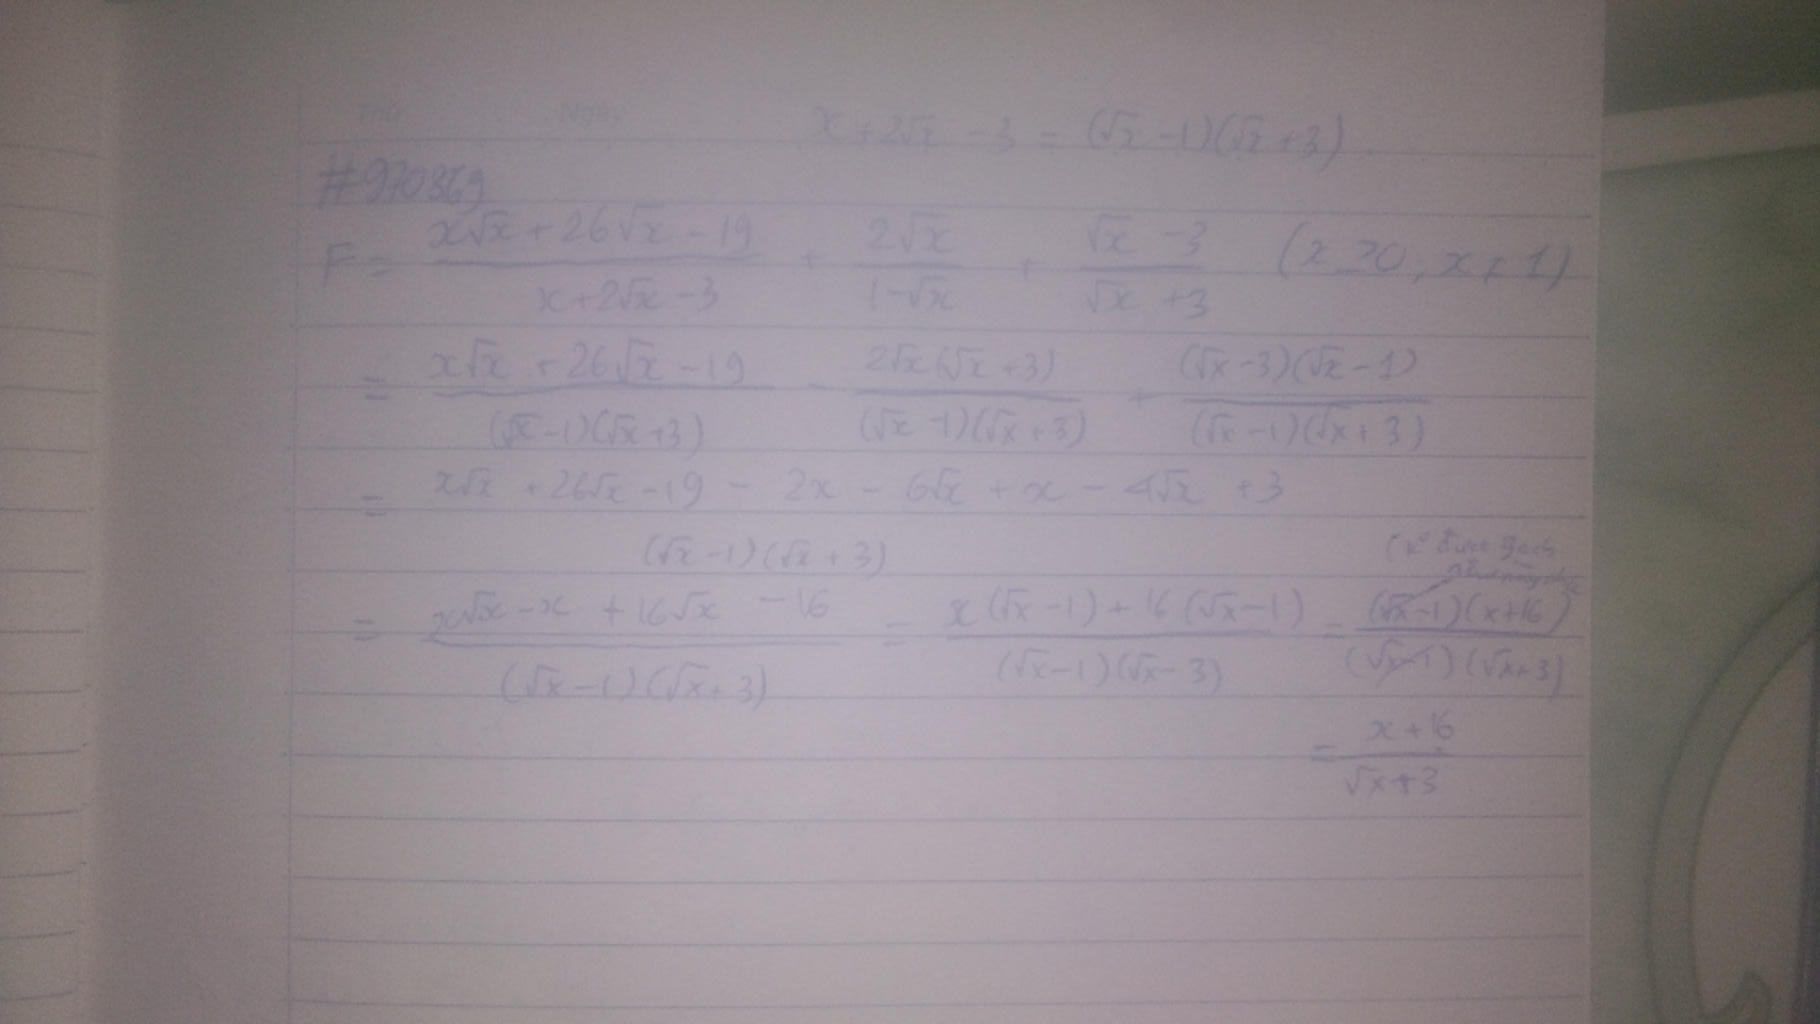 Thứ Ngày
x + 2√x - 3 = (√x - 1)(√x + 3)
#970369
F = (x√x + 26√x - 19)/(x + 2√x - 3) + (2√x)/(1 - √x) + (√x - 3)/(√x + 3) (x ≥ 0, x ≠ 1)
= (x√x + 26√x - 19)/((√x - 1)(√x + 3)) - (2√x(√x + 3))/((√x - 1)(√x + 3)) + ((√x - 3)(√x - 1))/((√x - 1)(√x + 3))
= (x√x + 26√x - 19 - 2x - 6√x + x - 4√x + 3)/((√x - 1)(√x + 3))
= (x√x - x + 16√x - 16)/((√x - 1)(√x + 3)) = (x(√x - 1) + 16(√x - 1))/((√x - 1)(√x - 3)) = ((√x - 1)(x + 16))/((√x - 1)(√x + 3))
= (x + 16)/(√x + 3)